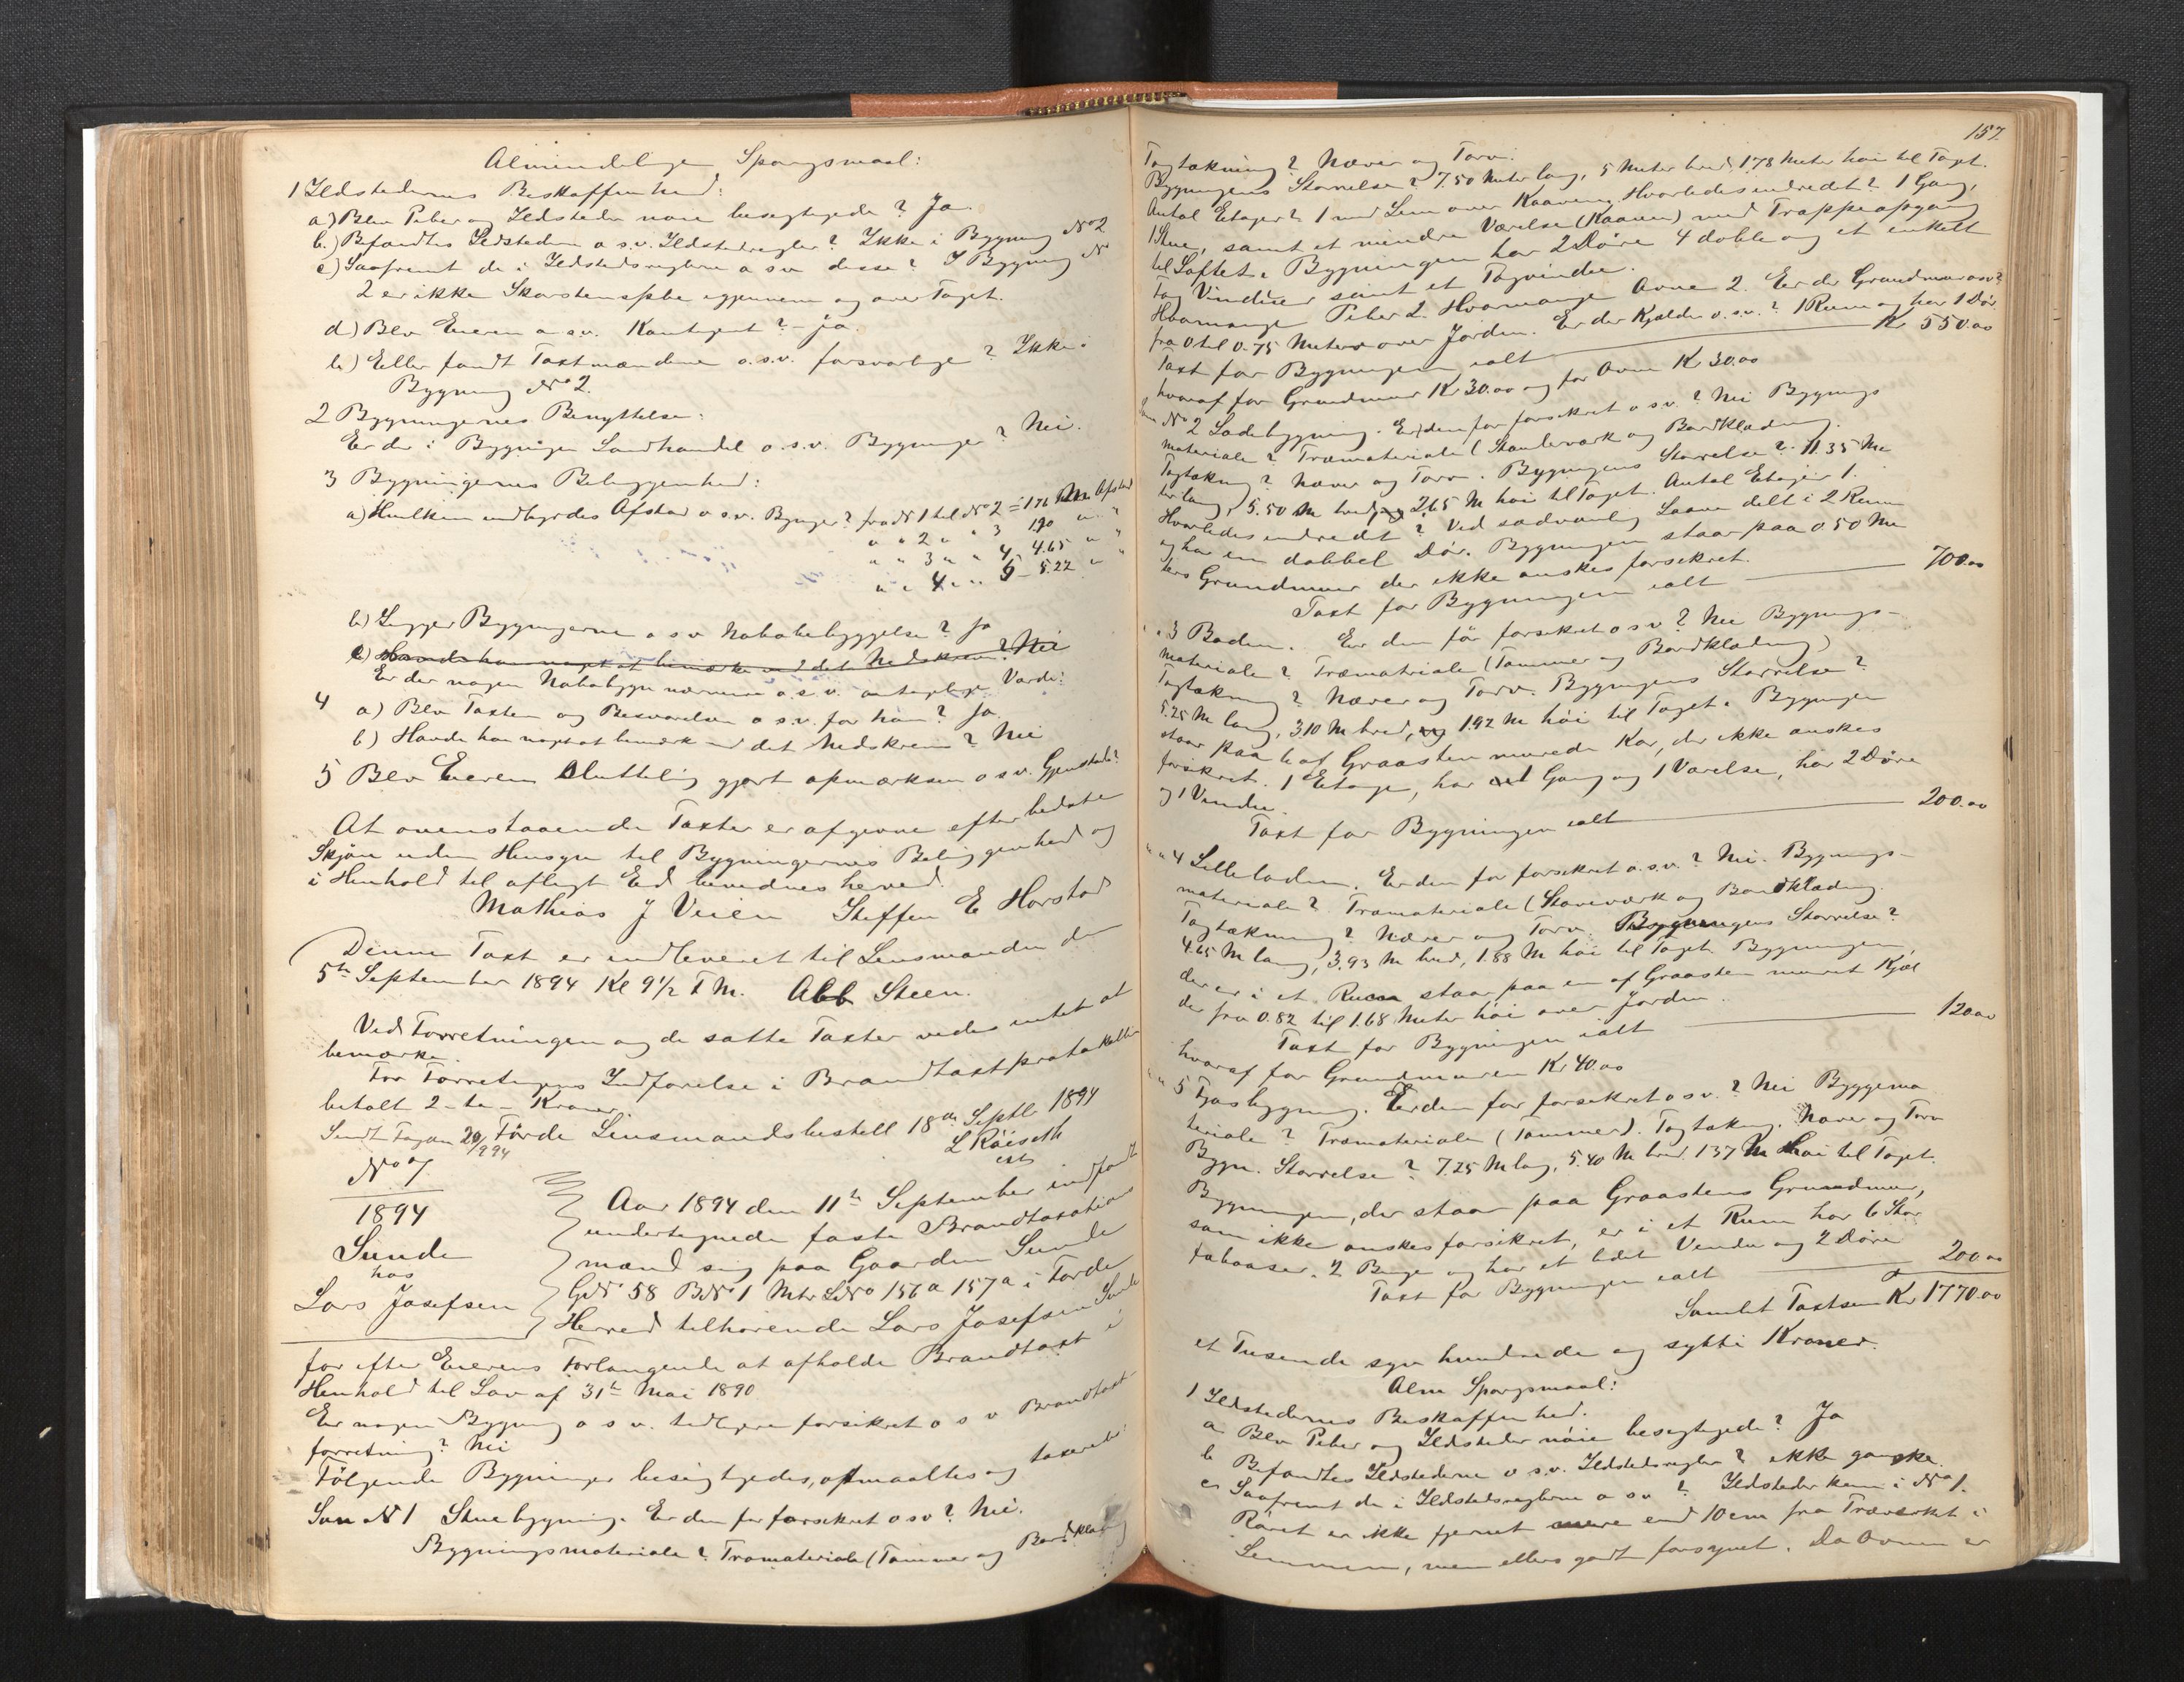 Almindelige Spørgsmaal:
1 Ildstedernes Beskaffenhed:
a) Blev Piber og Ildsteder nøie besigtigede? Ja.
b.) Befandtes Ildstederne o.s.v. Ildstedsregler? Ikke i Bygning No 2
c) Saafremt de i Ildstedsreglerne o s v disse? I Bygning N
2 er ikke Skorstenspibe igjennem og over Taget.
d) Blev Eieren o.s.v. Kontigent? - ja.
b) Eller fandt Taxtmændene o.s.v. forsvarlige? Ikke i
Bygning No 2.
2 Bygningernes Benyttelse:
Er der i Bygnigen Landhandel o.s.v. Bygninger? Nei.
3 Bygningernes Beliggenhed:
a) Hvilken indbyrdes Afstand o s.v. Bygnger? fra N 1 til No 2 = 176 Afstand
" " 2 " " 3 190 " "
" " 3 " " 4 4.65 " "
" " 4 " " 5 - 5.22 " "
b) Ligger Bygningerne o s v Nabobebyggelse? Ja
c) Havde han noget at bemærke ved det Nedskrevne? Nei
Er der nogen Nabobygn nærmere o.s.v. antagelige Værdi:
4 a) Blev Taxten og Besvarelsen o s.v. for ham? Ja.
b) Havde han noget at bemærk ved det Nedskrevne? Nei
5 Blev Eieren sluttelig gjort opmærksom o s v. Gjenstande?
At ovenstaaende Taxter er afgivne efter bedste
Skjøn uden Hensyn til Bygningernes Beliggenhed og
i Henhold til aflagt Ed bevidnes herved.
Mathias J Veien Steffen E Horstad
Denne Taxt er indleveret til Lensmanden den
5te September 1894 Kl 9 1/2 F M. Abb Steen.
Ved Forretningen og de satte Taxter vides intet at
bemærke.
For Forretnigens Indførelse i Brandtaxtprotokollen
betalt 2 - to - Kroner.
Sendt Fogden 20/9 94 Førde Lensmandsbestell 18de Septb 1894
L Röiseth
cst
No 7
1894
Sunde
hos
Lars Josefsen
Aar 1894 den 11te September indfandt
undertegnede faste Brandtaxations
mænd sig paa Gaarden Sunde
GNo 58 BNo 1 Mtr LNo 156a 157a i Førde
Herred tilhørende Lars Josefsen Sunde
for efter Eierens Forlangende at afholde Brandtaxt i
Henhold til Lov af 31te Mai 1890
Er nogen Bygning o s v. tidligere forsikret o s v Brandtaxt
forretning? Nei
Følgende Bygninger besigtigedes, opmaaltes og taxeredes:
Som N 1 Stuebygning. Er den før forsikret o s v? Nei.
Bygningsmateriale? Træmateriale (Tømmer og Bordklædning
157.
Tagtækning? Næver og Torv.
Bygningens Størrelse? 7.50 Meter lang, 5 Meter bred, 1.78 Meter høi til Taget.
Antal Etager? 1 med Lem over Kaaven. Hvorledes indredt? 1 Gang,
1 Stue, samt et mindre Værelse (Kaaven) med Trappeopgang
til Loftet. Bygningen har 2 Døre 4 doble og et enkelt
fag Vinduer samt et Tagvindu.
Hvormange Piber 2. Hvormange Ovne 2. Er der Grundmur osv?
fra 0 til 0.75 Meter over Jorden. Er der Kjælder o.s.v.? 1 Rum og har 1 Dør
Taxt for Bygningen ialt Kr 550.00
hvoraf for Grundmur Kr 30.00 og for Ovne Kr 30.00
Som No 2 Ladebygning. Er den før forsikret o s.v.? Nei Bygnings
materiale? Træmateriale (Stauleværk og Bordklædning.
Tagtækning? Næver og Torv. Bygningens Størrelse? 11.35 Me
ter lang, 5.50 M bred, og 2.65 M høi til Taget. Antal Etager 1.
Hvorledes indredt? Ved sædvanlig Laave delt i 2 Rum
og har en dobbel Dør. Bygningen staar paa 0.50 Me
ters Grundmur der ikke ønskes forsikret.
Taxt for Bygningen ialt 700.00
" 3 Boden. Er den før forsikret o s v? Nei Bygnings-
materiale? Træmateriale (Tømmer og Bordklædning)
Tagtækning? Næver og Torv. Bygningens Størrelse?
5.25 M lang, 3.10 M bred, og 1.92 M høi til Taget. Bygningen
staar paa 6 af Graasten murede Kar, der ikke ønskes
forsikret. 1 Etage, har 1 Gang og 1 Værelse, har 2 Døre
og 1 Vindu.
Taxt for Bygningen ialt 200.00
" " 4 Lilleladen. Er den før forsikret o.s.v.? Nei. Bygnings-
materiale? Træmateriale (Staveværk og Bordklædning.
Tagtækning? Næver og Torv. Bygningens Størrelse?
4.65 M lang, 3.93 M bred, 1.88 M høi til Taget. Bygningen,
der er i et Rum staar paa en af Graasten muret Kjæl
der fra 0.82 til 1.68 Meter høi over Jorden.
Taxt for Bygningen ialt 120.00
hvoraf for Grundmuren Kr 40.00
" " 5 Fjøsbygning. Er den før forsikret o s v.? Nei Byggema
teriale? Træmateriale (Tømmer). Tagtækning. Næver og Torv
Bygn. Størrelse? 7.25 M lang, 5.40 M bred. 1.37 M høi til Taget.
Bygningen, der staar paa Graastens Grundmur,
som ikke ønskes forsikret, er i et Rum har 6 Stor
fæbaaser, 2 Binge og har et lidet Vindu og 2 Døre
Taxt for Bygningen ialt 200.00
Samlet Taxtsum Kr 1770.00
et Tusende syv hundrede og sytti Kroner.
Alm Spørgsmaal:
1 Ildstedernes Beskaffenhed.
a Blev Piber og Ildsteder nøie besigtigede? Ja
b Befandtes Ildstederne o s.v. Ildstedsregler? ikke ganske.
c Saafremt de i Ildstedsreglerne o s v? Ildstederkom i No 1.
Røret er ikke fjernet mere end 10 cm fra Træværket i
Lemmen, men ellers godt forsynet. Da Ovnen er